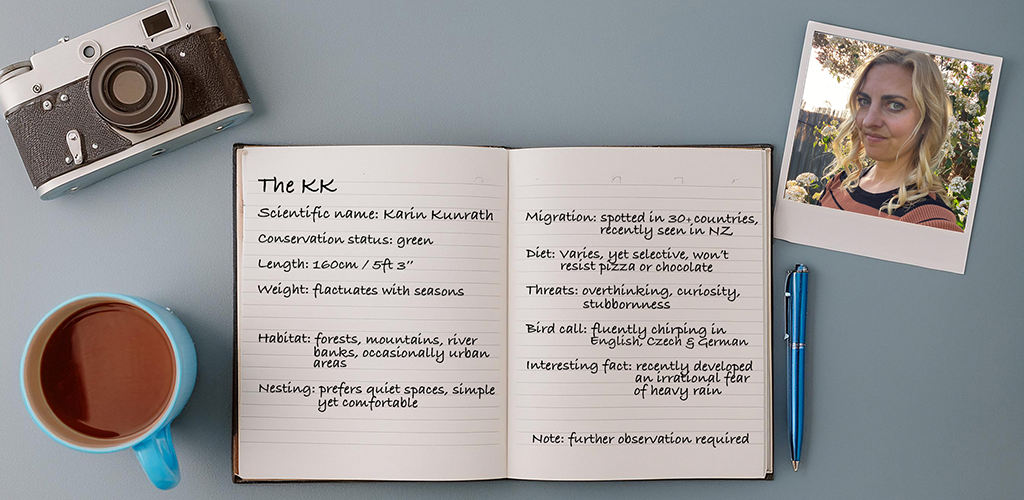 The KK
Scientific name: Karin Kunrath
Conservation status: green
Length: 160cm / 5ft 3"
Weight: flactuates with seasons
Habitat: forests, mountains, river
banks, occasionally urban
areas
Nesting: prefers quiet spaces, simple
yet comfortable
Migration: spotted in 30+countries,
recently seen in NZ
Diet: Varies, yet selective, won't
resist pizza or chocolate
Threats: overthinking, curiosity,
stubbornness
Bird call: fluently chirping in
English, Czech & German
Interesting fact: recently developed
an irrational fear
of heavy rain
Note: further observation required